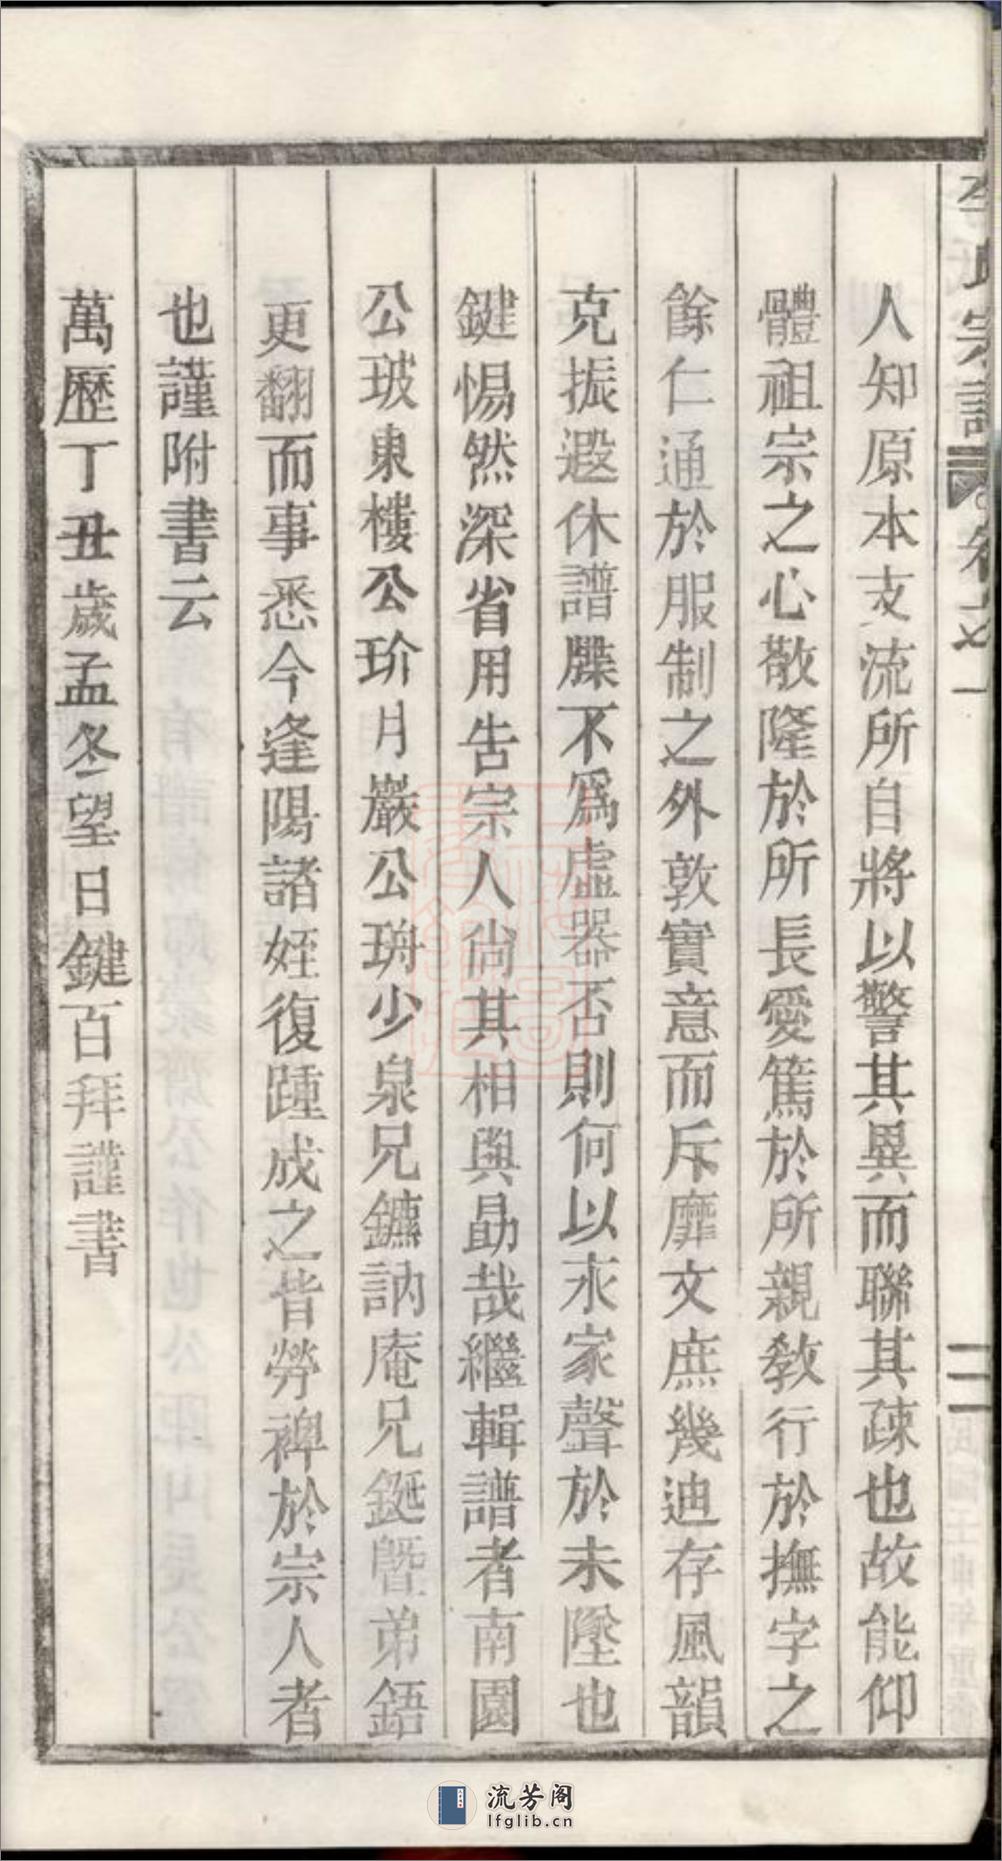 李氏宗譜 卷之一 二
人知原本支流所自將以警其異而聯其疎也故能仰
體祖宗之心敬隆於所長愛篤於所親教行於撫字之
餘仁通於服制之外敦實意而斥靡文庶幾迪存風韻
克振遐休譜牒不爲虛器否則何以永家聲於未墜也
鍵惕然深省用告宗人尙其相與勗哉繼輯譜者南園
公玻東樓公玠月巖公珘少泉兄鑣訥庵兄鋋曁弟鋙
更翻而事悉今逢陽諸姪復踵成之皆勞裨於宗人者
也謹附書云
萬歷丁丑歲孟冬望日鍵百拜謹書
流芳阁
lfglib.cn